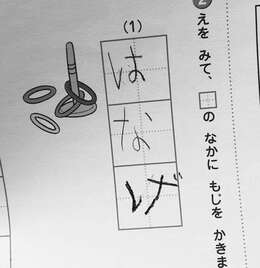 2
えを みて、□の なかに もじを かきま
(1)
はなげ